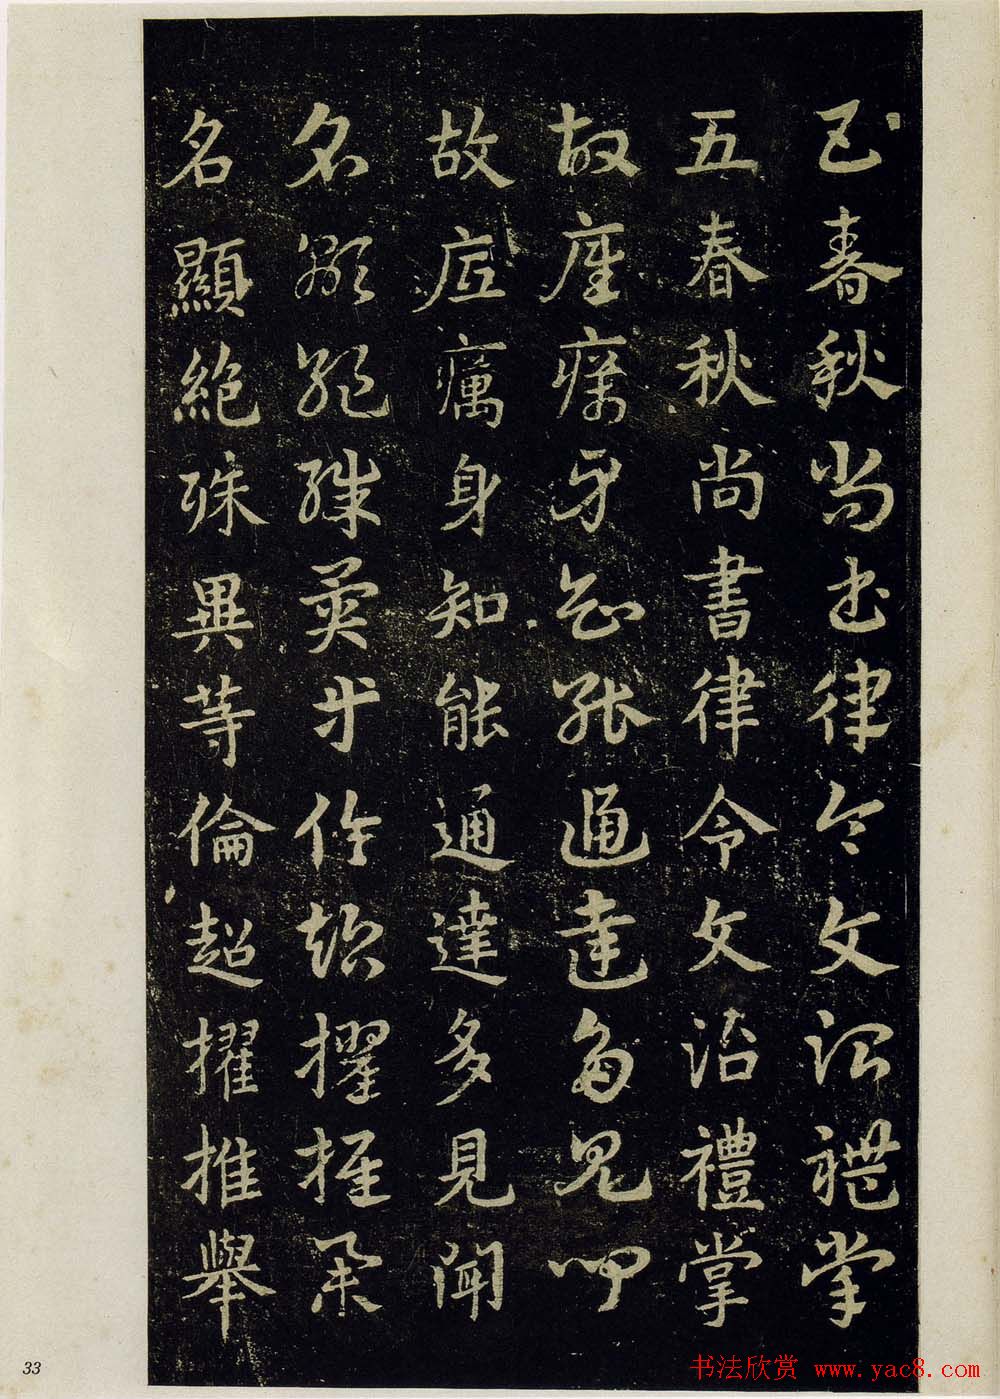 五春秋尚書律令文治禮掌
五春秋尚書律令文治禮掌
故底厲身知能通達多見聞
故底癘身知能通達多見聞
名顯絕殊異等倫超擢推舉
名顯絕殊異等倫超擢推舉
33
书法欣赏 www.yac8.com